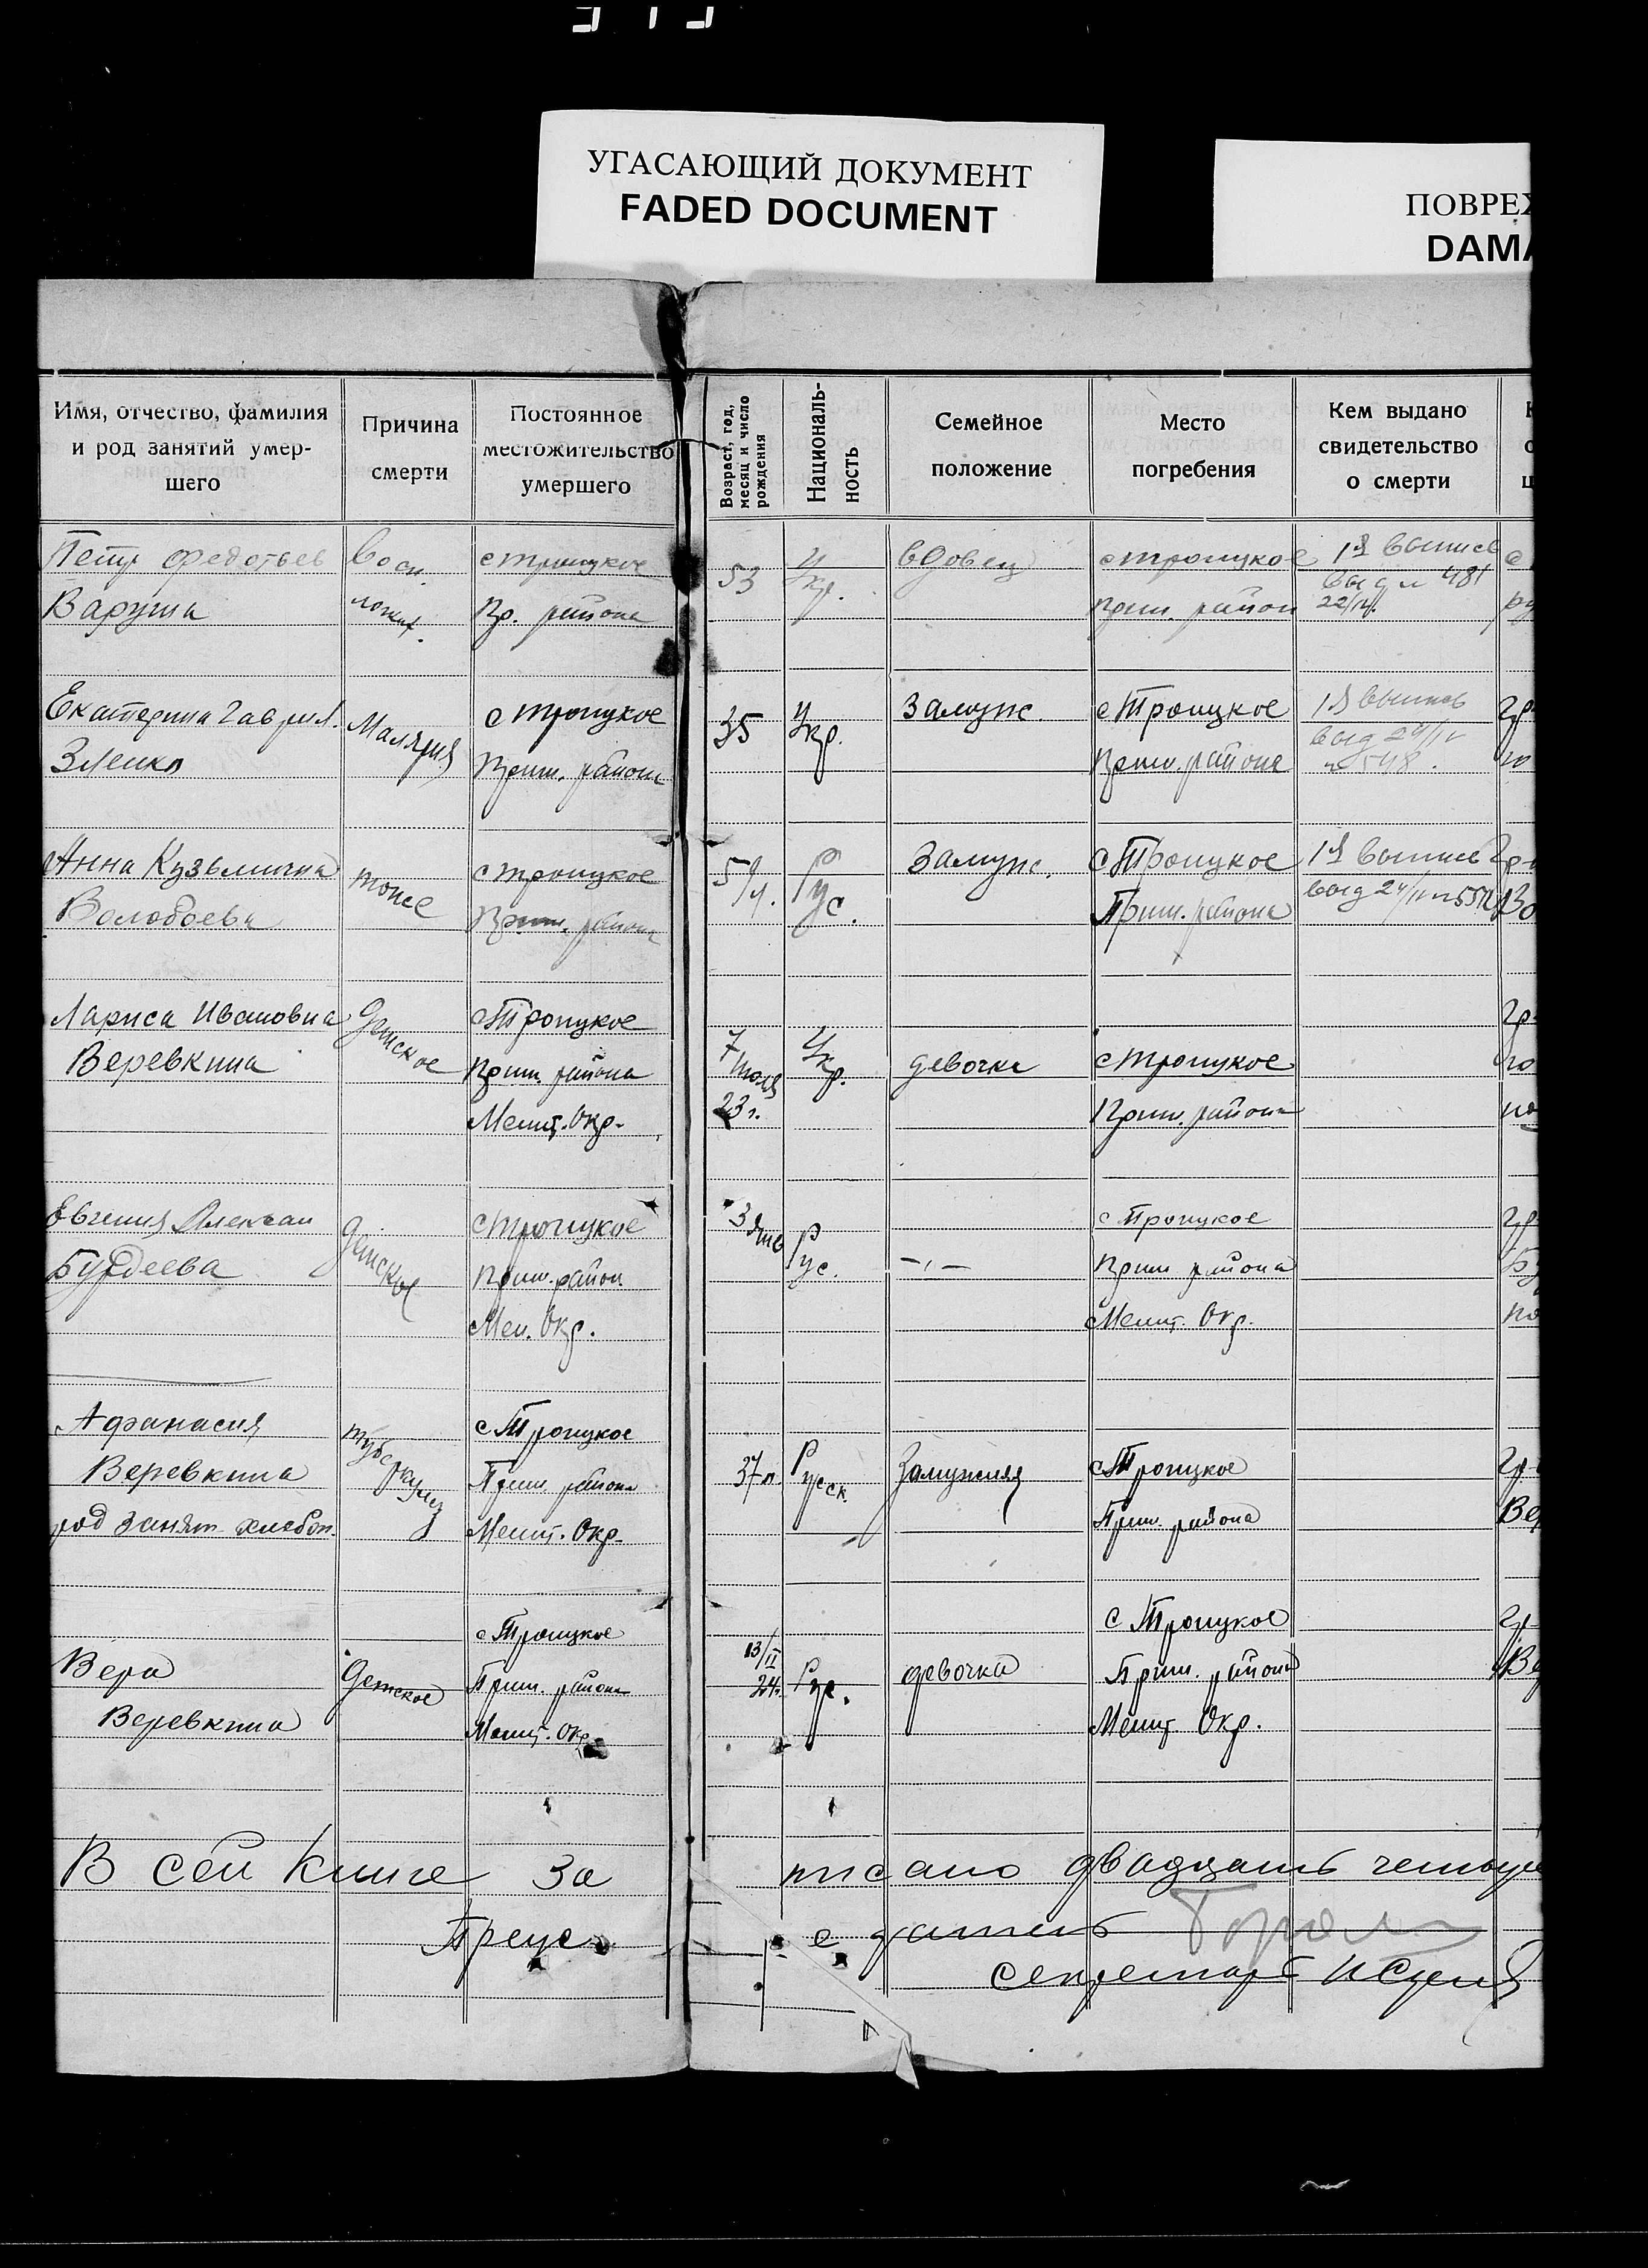 УГАСАЮЩИЙ ДОКУМЕНТ
FADED DOCUMENT
ПОВРЕЖ
DAMA
Имя, отчество, фамилия
и род занятий умер-
шего
Причина
смерти
Постоянное
местожительство
умершего
Возраст, год,
месяц и число
рождения
Националь-
ность
Семейное
положение
Место
погребения
Кем выдано
свидетельство
о смерти
Петр Федотьев
Варуша
Восп.
легких.
с Троицкое
Пр. района
53
Укр.
вдовец
с Троицкое
Приш. район
1я выпись
выд № 481
22/IV.
Екатерина Гаврил.
Зленко
Малярия
с Троицкое
Приш. района
35
Укр.
Замужс.
с Троицкое
Приш. района
1я выпись
выд 24/IV
№ 548.
Анна Кузьминична
Волобоева
тоже
с Троицкое
Приш. района
Рус.
Замужс.
с Троицкое
Приш. района
1я выпись
выд 24/IV
Лариса Ивановна
Веревкина
Детское
с Троицкое
Приш. района
Мелит. Окр.
7
23 г.
Укр.
девочка
с Троицкое
Приш. района
Евгения Алексан
Бурдеева
Детское
с Троицкое
Приш. район
Мел. Окр.
3 янв
Рус.
—,—
с Троицкое
Приш района
Мелит. Окр.
Афанасия
Веревкина
род занят хлебоп.
туберкулез
с Троицкое
Приш. района
Мелит. Окр.
37 л.
Русск.
Замужняя
с Троицкое
Приш. района
Вера
Веревкина
Детское
с Троицкое
Приш. района
Мелит. Окр.
13/II
24 г.
Рус.
девочка
с Троицкое
Приш. района
Мелит. Окр.
В сей книге за писано двадцать четыре
Предс е датель
секретарь